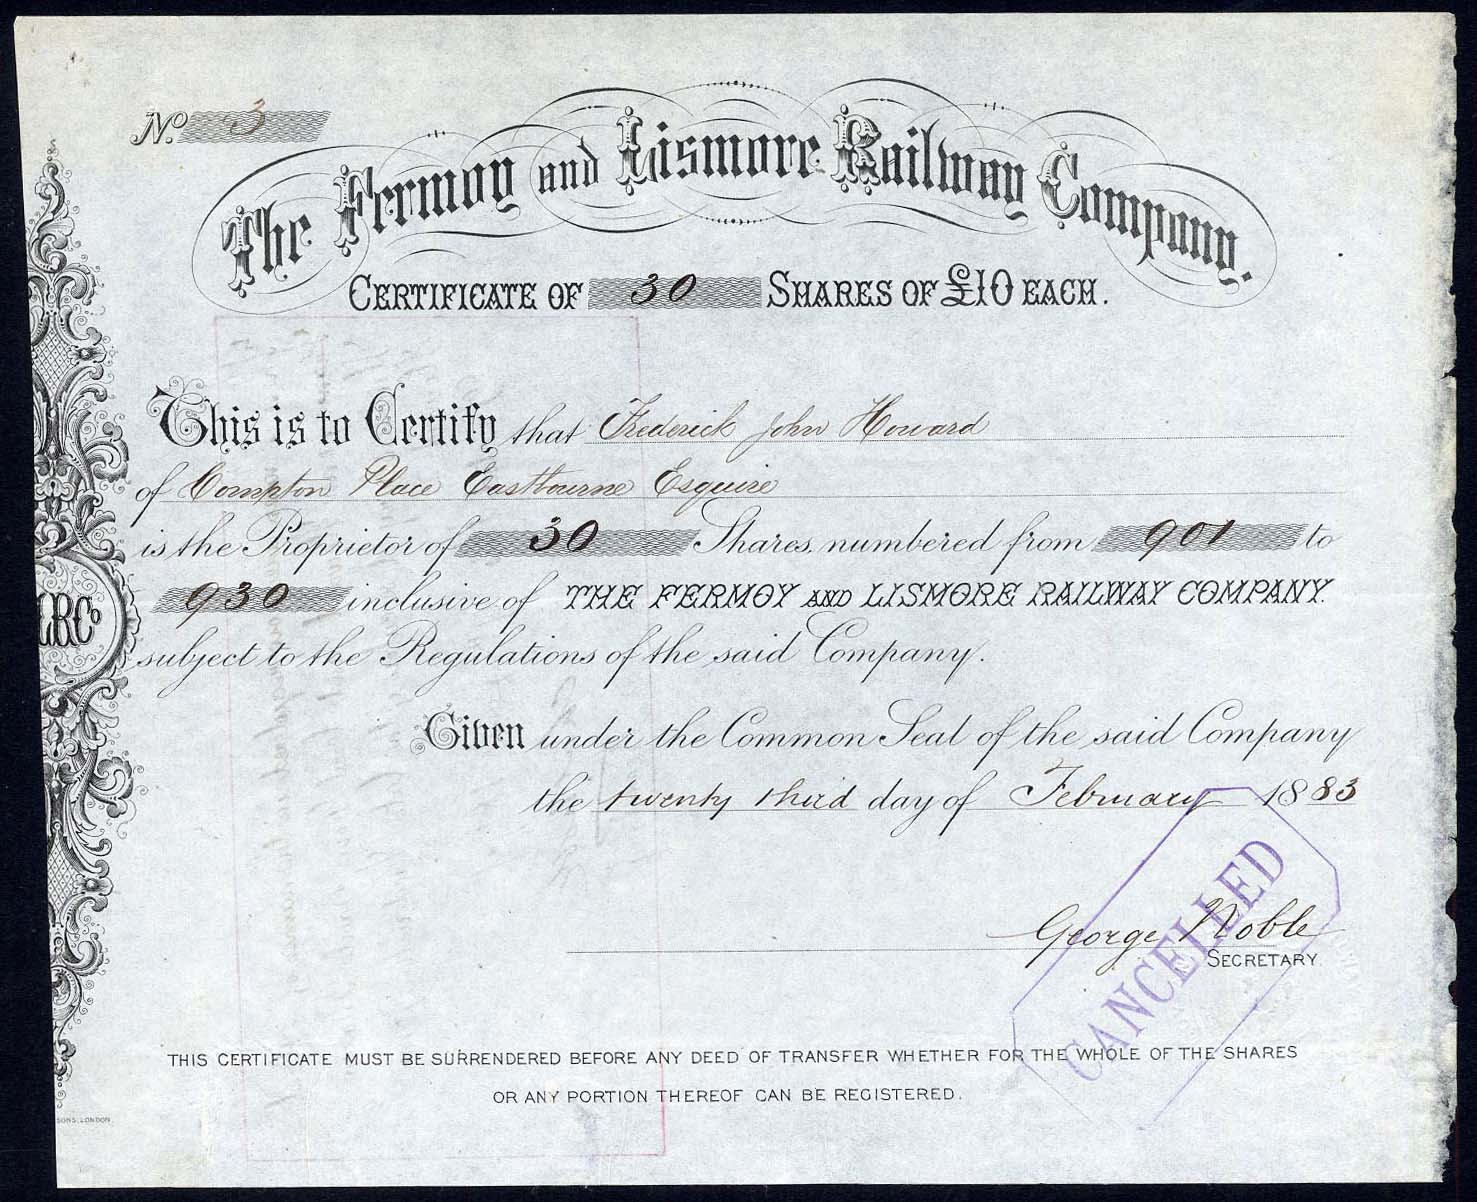 No. 3
The Fermoy and Lismore Railway Company.
CERTIFICATE OF 30 SHARES OF £10 EACH.
This is to Certify that Frederick John Howard
of Compton Place Eastbourne Esquire
is the Proprietor of 30 Shares, numbered from 901 to
930 inclusive of THE FERMOY AND LISMORE RAILWAY COMPANY.
subject to the Regulations of the said Company.
LRCo
Given under the Common Seal of the said Company
the twenty third day of February 1883
George Noble
SECRETARY.
CANCELLED
THIS CERTIFICATE MUST BE SURRENDERED BEFORE ANY DEED OF TRANSFER WHETHER FOR THE WHOLE OF THE SHARES
OR ANY PORTION THEREOF CAN BE REGISTERED.
SONS, LONDON.